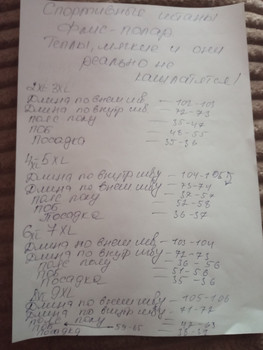 Спортивные штаны
Флис-полар
Теплые, мягкие и они
реально не
кашлатятся!
2X-3XL
Длина по внеш шв — 102-103
Длина по внутр шв — 72-73
пояс полу — 35-47
ПОБ — 48-55
Посадка — 35-36
4-5XL
Длина по внутр шву — 104-105
Длина по внешн шву — 73-74
пояс полу
ПОБ — 52-58
Посадка — 36-37
6-7XL
Длина по внеш шв — 103-104
Длина по внутр шву — 72-73
пояс полу — 36-56
ПОБ — 51-58
Посадка — 35-36
9XL
Длина по внеш шву — 105-106
Длина по внутр шву — 71-72
пояс полу
Посадка